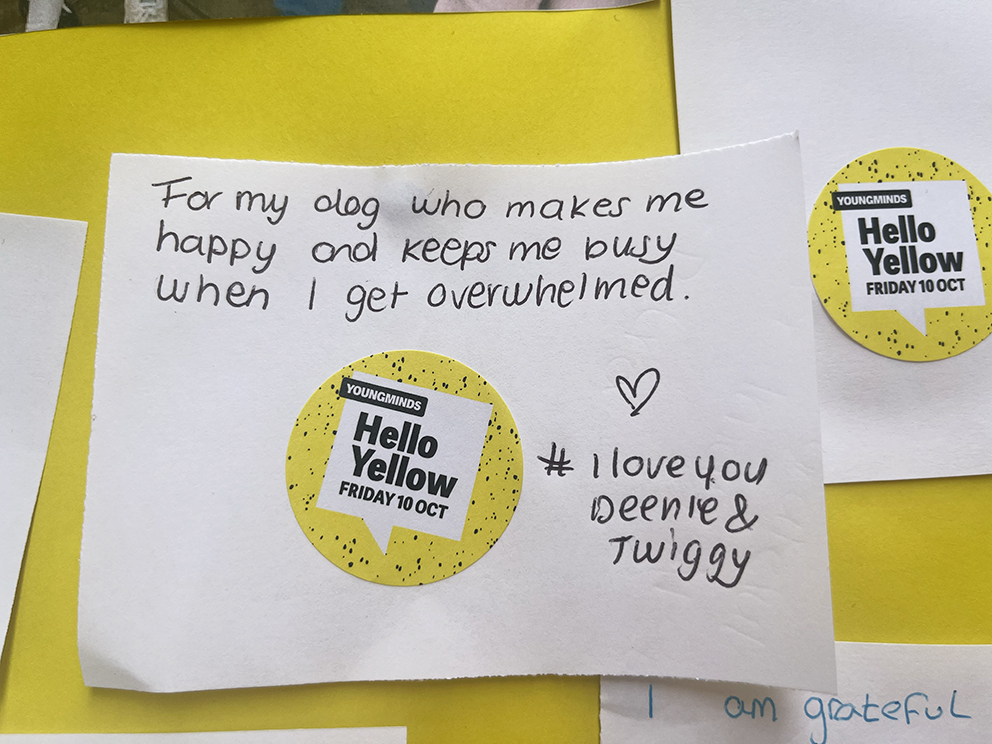 For my dog who makes me
happy and keeps me busy
when I get overwhelmed.
YOUNGMINDS
Hello
Yellow
FRIDAY 10 OCT
# I love you
Deenie &
Twiggy
YOUNGMINDS
Hello
Yellow
FRIDAY 10 OCT
I am grateful